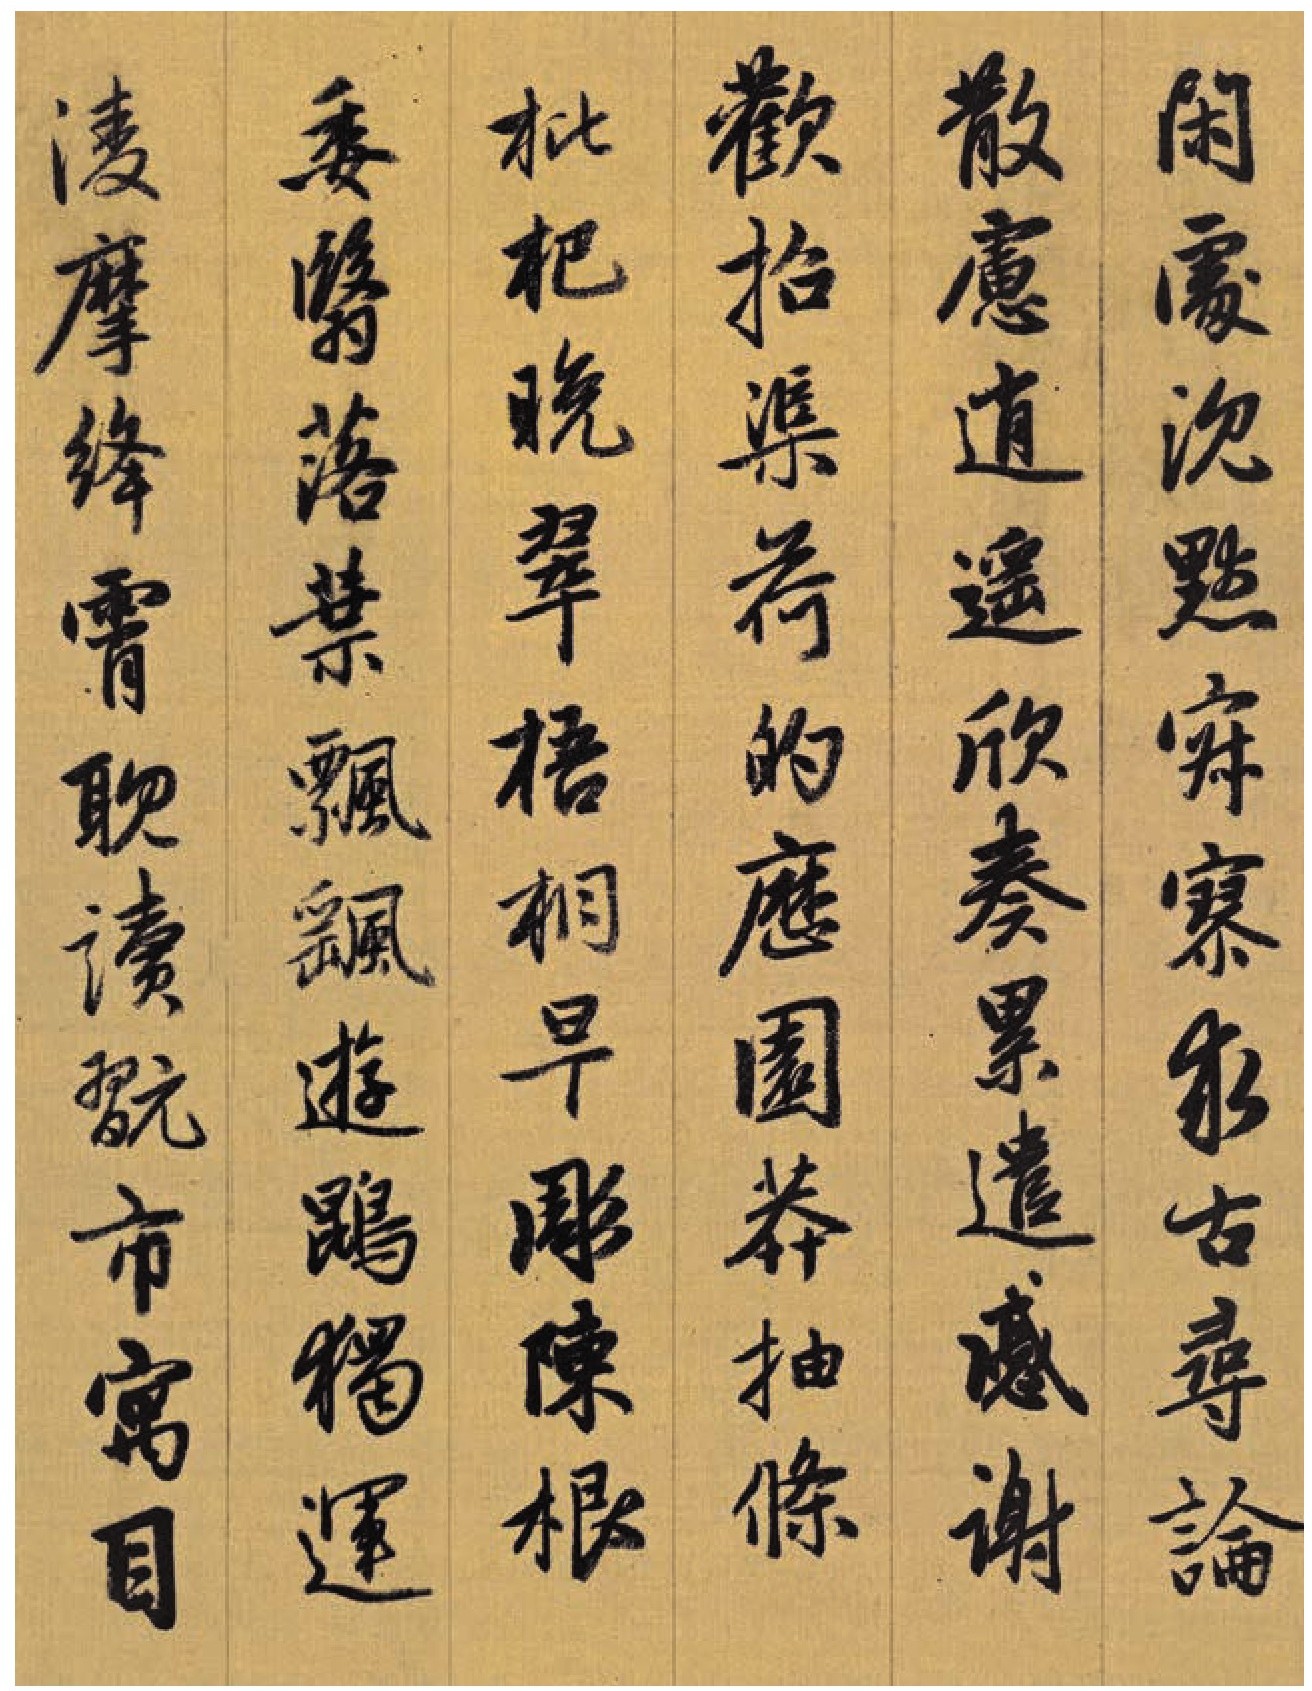 閑處沈默寂寥求古尋論
散慮逍遙欣奏累遣慼謝
歡招渠荷的歷園莽抽條
枇杷晚翠梧桐早彫陳根
委翳落葉飄颻遊鵾獨運
淩摩絳霄耽讀翫市寓目